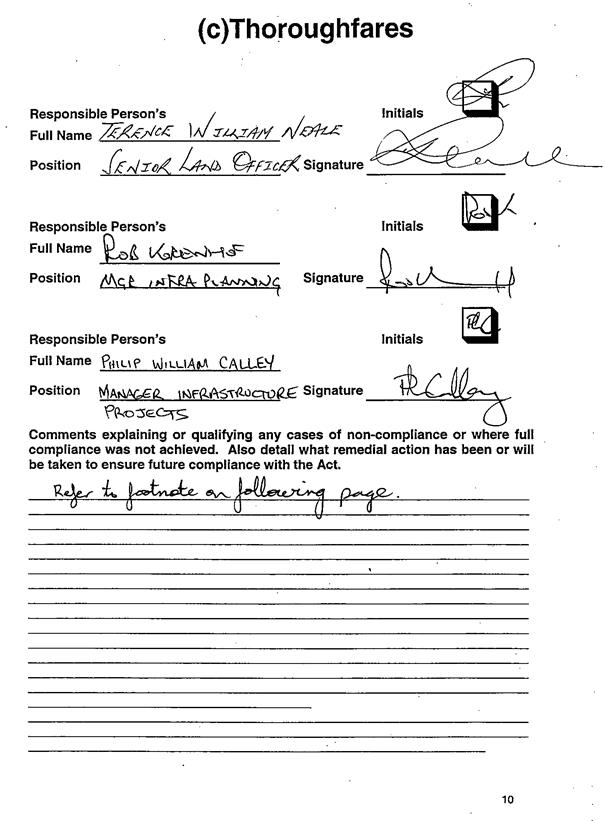 (c)Thoroughfares
Responsible Person's
Initials
Full Name TERENCE WILLIAM NEALE
Position SENIOR LAND OFFICER Signature
Responsible Person's
Initials
Full Name ROB
Position MGR INFRA PLANNING Signature
Responsible Person's
Initials PWC
Full Name PHILIP WILLIAM CALLEY
Position MANAGER INFRASTRUCTURE Signature PWCalley
PROJECTS
Comments explaining or qualifying any cases of non-compliance or where full
compliance was not achieved. Also detail what remedial action has been or will
be taken to ensure future compliance with the Act.
Refer to footnote on following page.
10